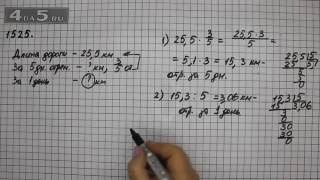 4DA5.RU
1525.
Длина дороги - 25,5 км
За 5 дн. отрем. - ? км, 3/5
За 1 день - ? км
1) 25,5 · 3/5 = 25,5·3/5 =
= 5,1·3 = 15,3 км -
отр. за 5 дн.
2) 15,3 : 5 = 3,06 км -
отр. за 1 день
25,5|5
25 5,1
5
5
0
15,3|5
15 3,06
30
30
0